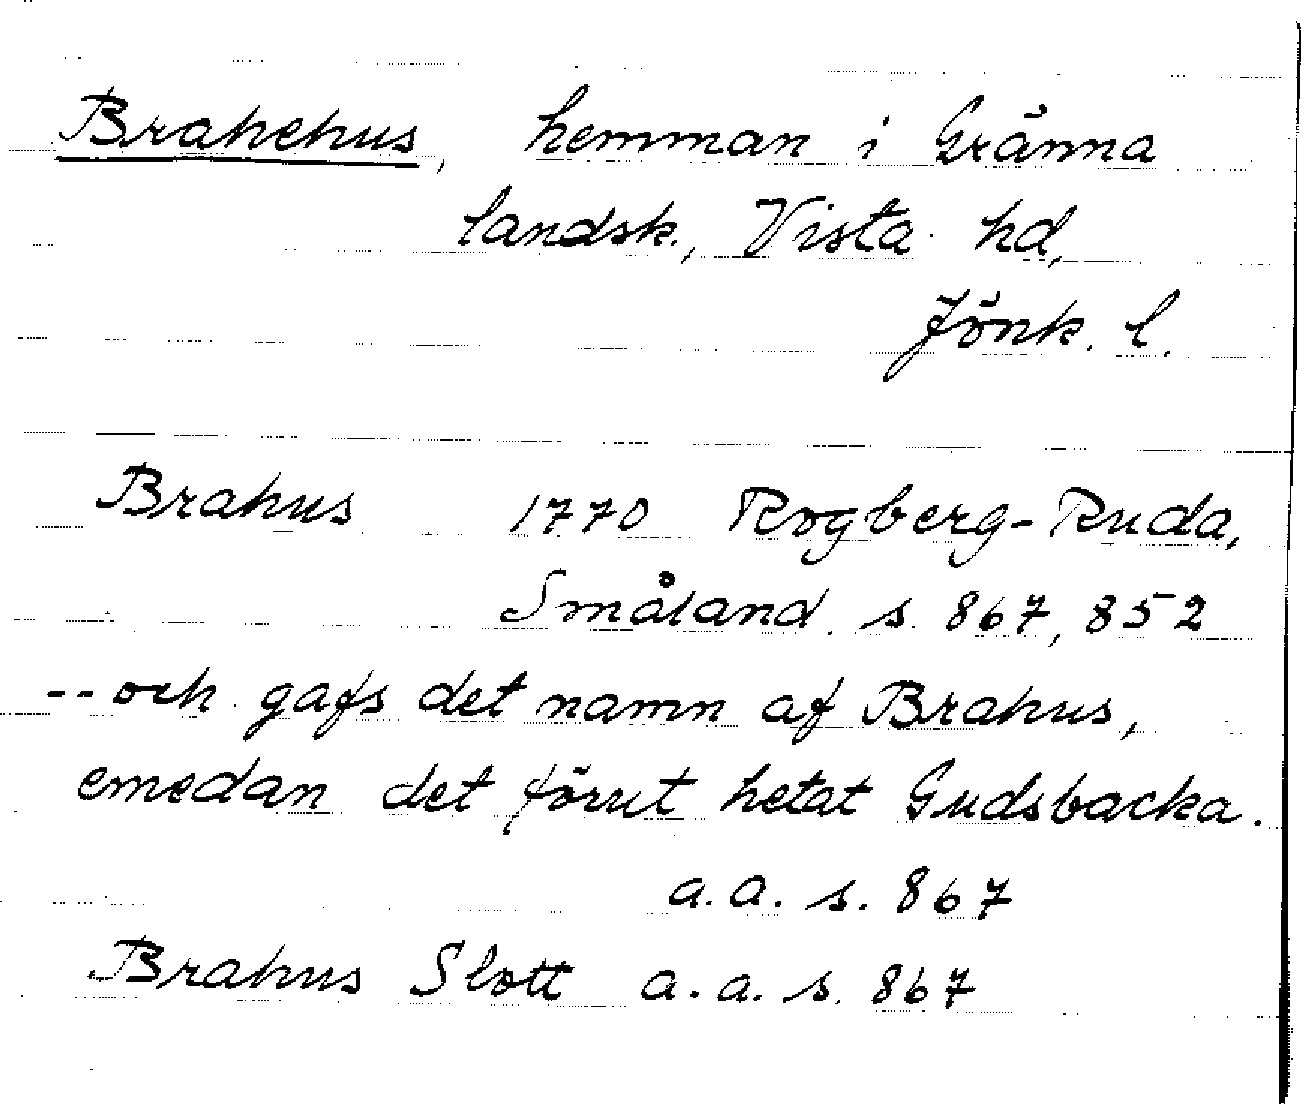 Brahehus, hemman i Gränna
landsk., Vista hd,
Jönk. l.
Brahus 1770 Rogberg-Ruda,
Småland s. 867, 852
-- och gafs det namn af Brahus,
emedan det förut hetat Gudsbacka.
a.a. s. 867
Brahus Slott a.a. s. 867